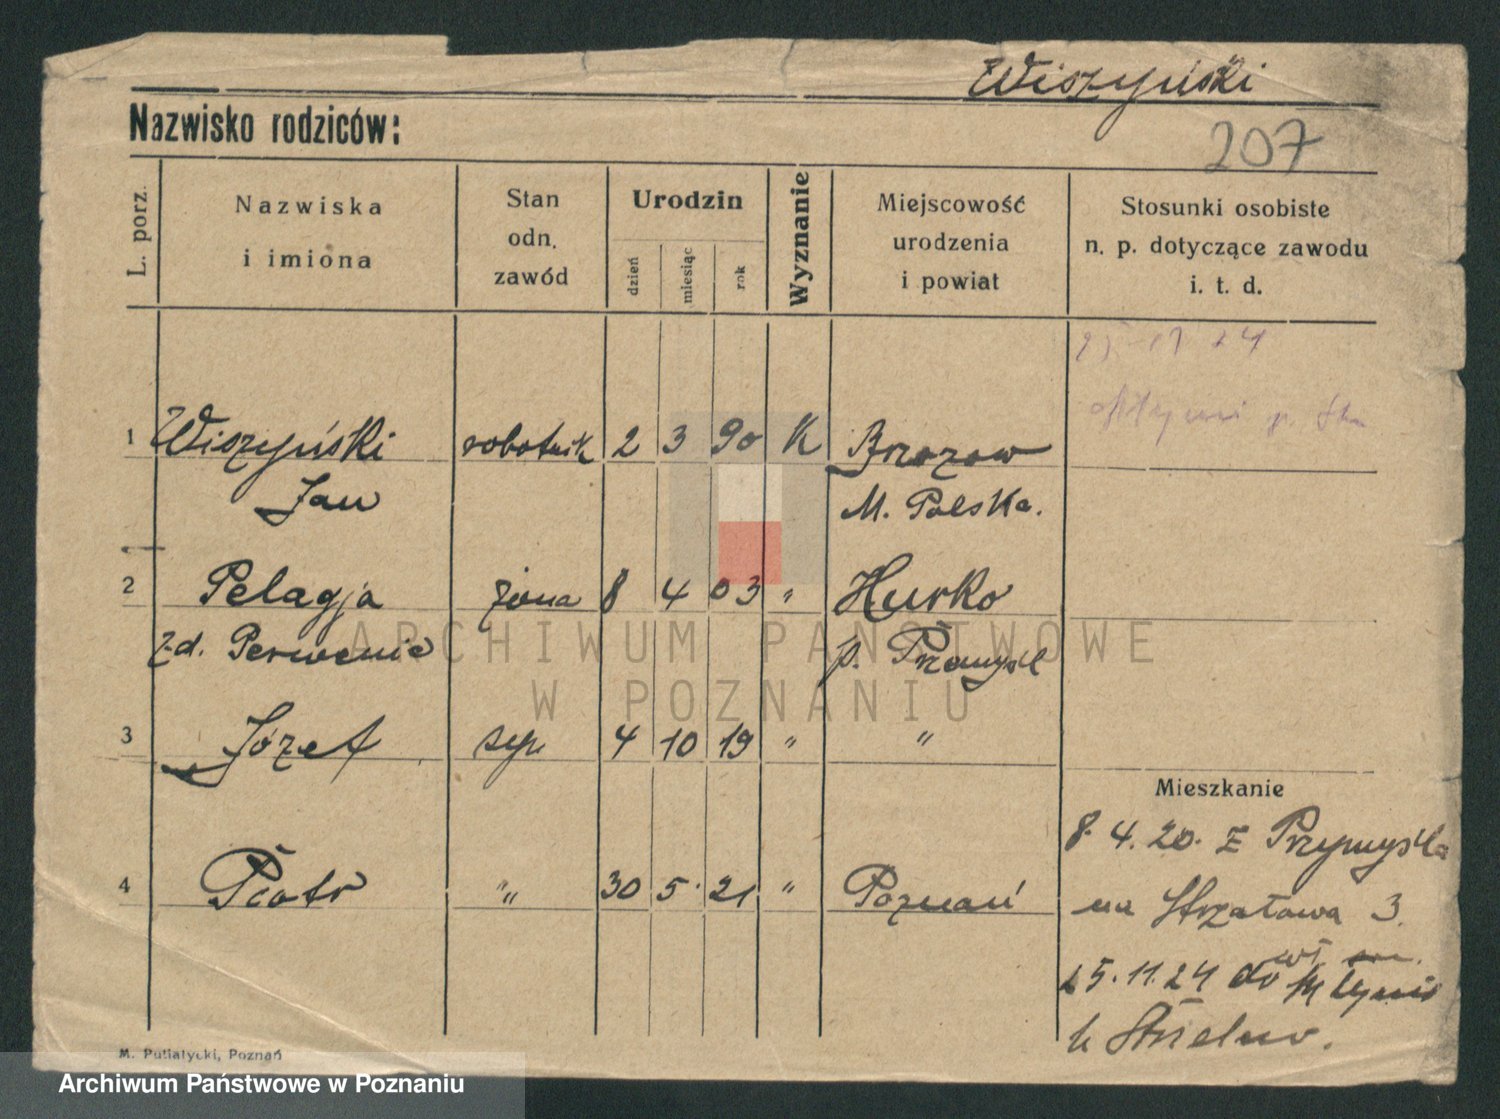 Wiszyński
Nazwisko rodziców:
207
L. porz.
Nazwiska
i imiona
Stan
odn.
zawód
Urodzin
dzień
miesiąc
rok
Wyznanie
Miejscowość
urodzenia
i powiat
Stosunki osobiste
n. p. dotyczące zawodu
i. t. d.
1 Wiszyński robotnik 2 3 90 K Brzozow
Jan M. Polska.
2 Pelagja żona 8 4 03 " Hurko
z d. p. Przemyśl
3 Józef syn 4 10 19 " "
Mieszkanie
8. 4. 20. z Przymyśla
4 Piotr " 30 5 21 " Poznań
na Strzałowa 3.
25.11.24 do
ARCHIWUM PAŃSTWOWE
W POZNANIU
M. Putiatycki, Poznań
Archiwum Państwowe w Poznaniu